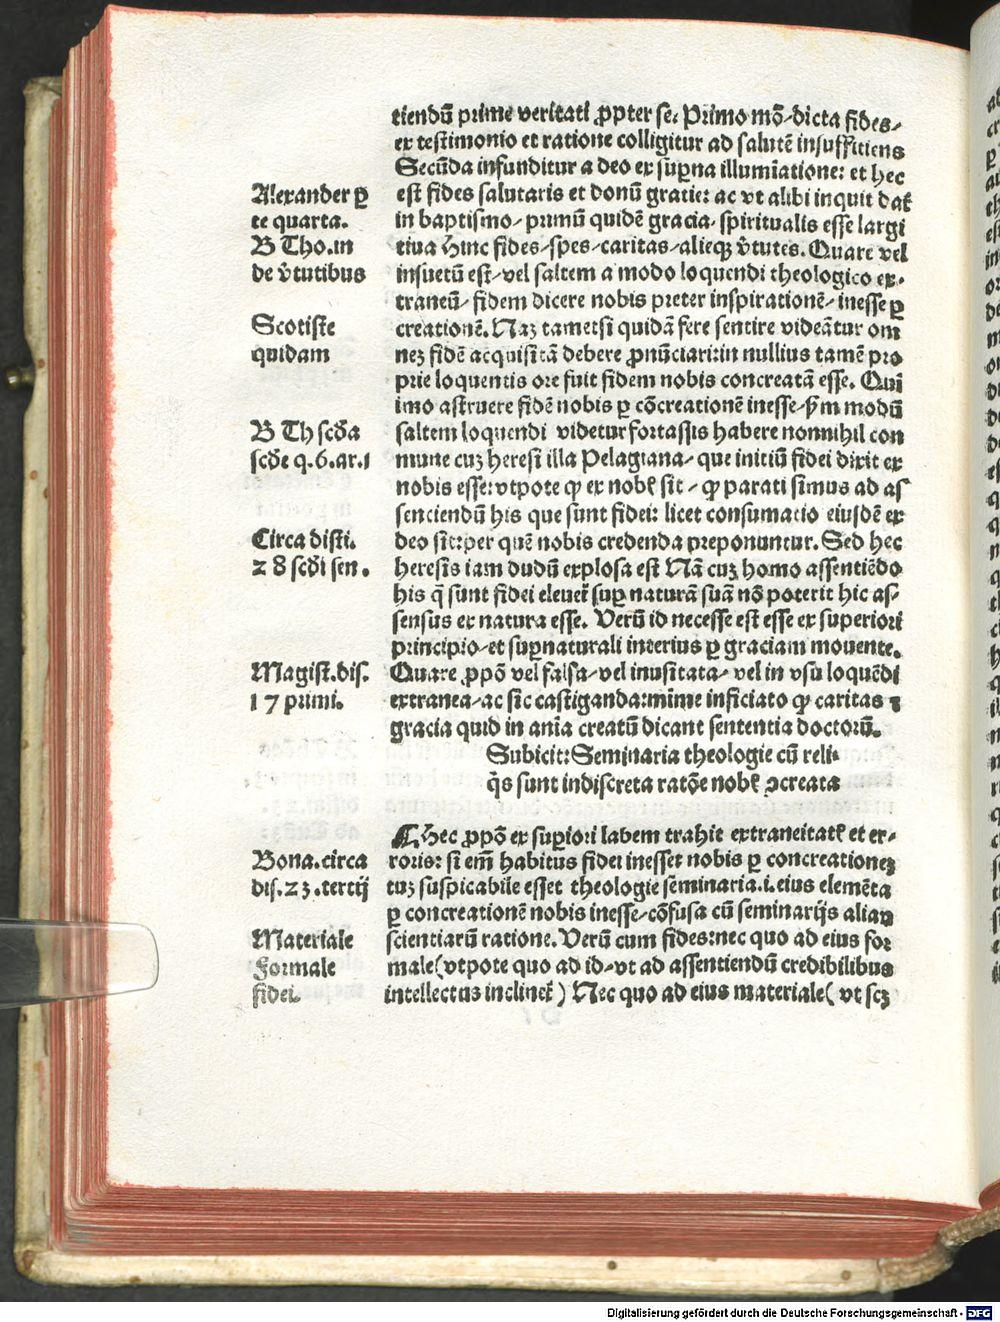 tiendū prime veritati ꝓpter se. Primo mō/dicta fides/
ex testimonio et ratione colligitur ad salutē insufficiens
Secūda infunditur a deo ex suꝑna illumīatione: et hec
est fides salutaris et donū gratie: ac vt alibi inquit dat᷑
in baptismo/ primū quidē gracia/ spiritualis esse largi
tiua Hinc fides/spes/caritas/alieqꝫ v̄tutes. Quare vel
insuetū est/vel saltem a modo loquendi theologico ex/
traneū/ fidem dicere nobis preter inspirationē/ inesse ꝑ
creationē. Naꝫ tametsi quidā fere sentire videātur om
neꝫ fidē acquisitā debere ꝓnūciari:in nullius tamē pro
prie loquentis ore fuit fidem nobis concreatā esse. Qui
imo astruere fidē nobis ꝑ cōcreationē inesse/ẜm modū
saltem loquendi videtur fortassis habere nonnihil con
mune cuꝫ heresi illa Pelagiana/ que initiū fidei dixit ex
nobis esse:vtpote ꝙ ex nob̄ sit / ꝙ parati simus ad as
senciendū his que sunt fidei: licet consumatio eiusdē ex
deo sit:per quē nobis credenda preponuntur. Sed hec
heresis iam dudū explosa est Nā cuꝫ homo assentiēdo
his q̄ sunt fidei eleuet᷑ suꝑ naturā suā nō poterit hic as/
sensus ex natura esse. Verū id necesse est esse ex superiori
principio/et suꝑnaturali interius ꝑ graciam mouente.
Quare ꝓpō vel falsa/vel inusitata/ vel in vsu loquēdi
extranea/ac sic castiganda:mīme inficiato ꝙ caritas ⁊
gracia quid in aīa creatū dicant sententia doctorū.
Subicit: Seminaria theologie cū reli/
q̄s sunt indiscreta ratōe nob̄ ↄcreata
Hec ꝓpō ex suꝑiori labem trahit extraneitat᷑ et er/
roris: si em̄ habitus fidei inesset nobis ꝑ concreationeꝫ
tuꝫ suspicabile esset theologie seminaria.i.eius elemēta
ꝑ concreationē nobis inesse/cōfusa cū seminarijs aliaꝝ
scientiarū ratione. Verū cum fides:nec quo ad eius for
male(vtpote quo ad id/vt ad assentiendū credibilibus
intellectus inclinet᷑) Nec quo ad eius materiale( vt scꝫ
Alexander ꝑ
te quarta.
B Tho.in
de v̄tutibus
Scotiste
quidam
B Th scd̄a
scd̄e q.6.ar.1
Circa disti.
28 scd̄i sen.
Magist.dis.
17 primi.
Bona.circa
dis.23.tertij
Materiale
Formale
fidei.
Digitalisierung gefördert durch die Deutsche Forschungsgemeinschaft - DFG